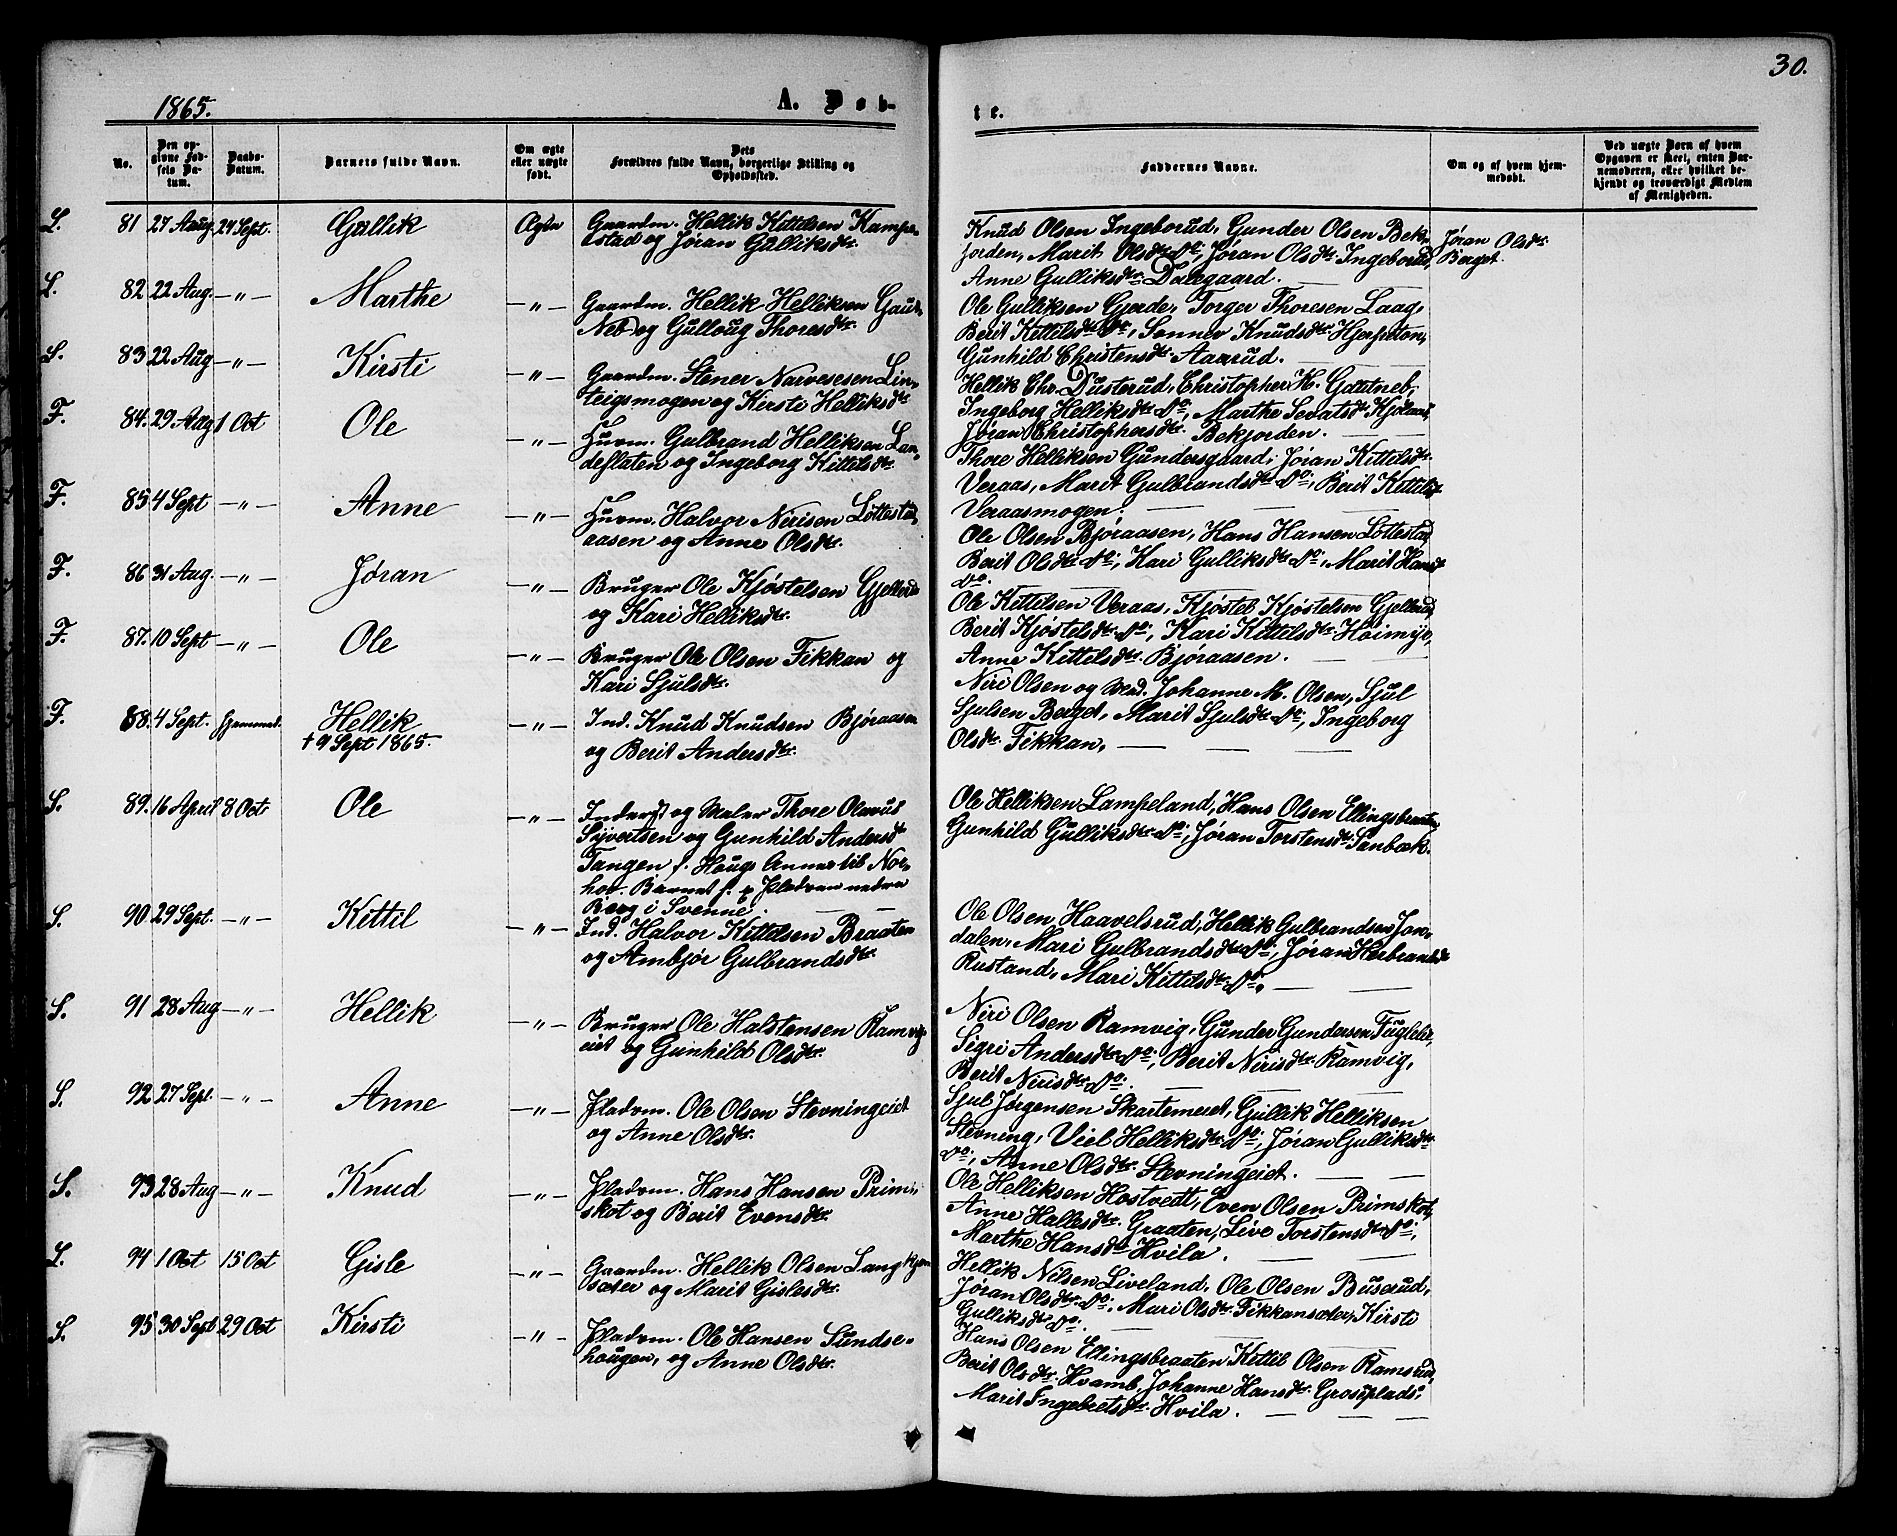 30.
1865.
A. Døb-
te.
No.
Den op-
givne Fød-
sels Da-
tum.
Daabs-
Datum.
Barnets fulde Navn.
Om ægte
eller uægte
født.
Dets
Forældres fulde Navn, borgerlige Stilling og
Opholdssted.
Faddernes Navne.
Om og af hvem hjem-
medøbt.
Ved uægte Børn af hvem
Opgaven er skeet, enten Bar-
nemoderen, eller hvilket be-
kjendt og troværdigt Medlem
af Menigheden.
L. 81 27 Aug. 24 Sept. Gullik Ægte
Gaardm. Hellik Kittelsen Kampe-
stad og Jøran Gulliksdtr.
Knud Olsen Ingeborud, Gunder Olsen Bek-
jorden, Marit Olsdtr. Do:, Jøran Olsdtr. Ingeborud,
Anne Gulliksdtr. Dalegaard.
Jøran Olsdtr.
Berget.
L. 82 22 Aug. —"— Marthe —"—
Gaardm. Hellik Helliksen Gaut-
Neb og Gulloug Thoresdtr.
Ole Gulliksen Gjerde, Torger Thoresen Laag,
Berit Kittelsdtr. Do:, Sønnev Knudsdtr. Hjerpeton,
Gunhild Christensdtr. Aasrud.
S. 83 22 Aug —"— Kirsti —"—
Gaardm. Stener Narvesesen Lin-
teigsmogen og Kirsti Helliksdtr
Hellik Chr. Dusterud, Christopher H. Gautneb,
Ingeborg Helliksdtr. Do:, Marthe Sevatsdtr. Kjølaas,
Jøran Christophersdtr. Bekjorden.
F. 84. 29 Aug 1 Oct Ole —"—
Huvm. Gulbrand Helliksen Lan-
deflaten og Ingeborg Kittelsdtr.
Thore Helliksen Gundersgaard, Jøran Kittelsdtr.
Veraas, Marit Gulbrandsdtr. Do:, Berit Kittelsdtr
Veraasmogen.
F. 85 4 Sept —"— Anne —"—
Huvm. Halvor Nirisen Løttestad-
aasen og Anne Olsdtr.
Ole Olsen Bjøraasen, Hans Hansen Løttestad,
Berit Olsdtr. Do:, Kari Gulliksdtr. Do:, Marit Hansdtr
Do:
F. 86 31 Aug. —"— Jøran —"—
Bruger Ole Kjøstelsen Gjellerud
og Kari Helliksdtr.
Ole Kittilsen Veraas, Kjøstel Kjøstelsen Gjellerud,
Berit Kjøstelsdtr. Do:, Kari Kittelsdtr. Høimyr,
Anne Kittelsdtr. Bjøraasen.
F. 87. 10 Sept —"— Ole —"—
Bruger Ole Olsen Fikkan og
Kari Sjulsdtr.
Niri Olsen og Mad. Johanne M. Olsen, Sjul
Sjulsen Berget, Marit Sjulsdtr. Do:, Ingeborg
Olsdtr. Fikkan.
F. 88. 4 Sept. hjemmed. Hellik —"—
† 9 Sept 1865.
Ind. Knud Knudsen Bjøraasen
og Berit Andersdtr.
S. 89. 16 April 8 Oct Ole —"—
Inderst og Maler Thore Olavus
Syvertsen og Gunhild Andersdtr
Tangen f. Houg Annex til Nor-
hov. Barnet f. p Pladsen nedre
Berg i Svenne.
Ole Helliksen Lampeland, Hans Olsen Ellingsbraaten,
Gunhild Gulliksdtr. Do:, Jøran Torstensdtr. Sanbæk.
S. 90. 29 Sept. —"— Kittil —"—
Ind. Halvor Kittelsen Braaten
og Ambjør Gulbrandsdtr.
Ole Olsen Haavelsrud, Hellik Gulbrandsen Jon-
dalen, Mari Gulbrandsdtr. Do:, Jøran Herbrandsdtr
Rustand, Mari Kittelsdtr. Do.
S. 91 28 Aug —"— Hellik —"—
Bruger Ole Halstensen Ramvig-
eiet og Gunhild Olsdtr.
Niri Olsen Ramvig, Gunder Gundersen Fuglelie,
Sigri Andersdtr. Do:, Berit Nirisdtr. Ramvig,
Berit Nirisdtr. Do:
S. 92 27 Sept. —"— Anne —"—
Pladsm. Ole Olsen Stevningeiet
og Anne Olsdtr.
Sjul Jørgensen Skartemeret, Gullik Helliksen
Stevning, Viel Helliksdtr. Do:, Jøran Gulliksdtr.
Do:, Anne Olsdtr. Stevningeiet.
S. 93 28 Aug —"— Knud —"—
Pladsm. Hans Hansen Prim-
skot og Berit Evensdtr.
Ole Helliksen Hostvedt, Even Olsen Primskot,
Anne Hallesdtr. Graaten, Live Torstensdtr. Do:,
Marthe Hansdtr. Hvila.
L. 94 1 Oct 15 Oct Gisle —"—
Gaardm. Hellik Olsen Langkjøn
sæter og Marit Gislesdtr.
Hellik Nilsen Liveland, Ole Olsen Buserud,
Jøran Olsdtr. Do:, Mari Olsdtr. Fikkansæter, Kirsti
Gulliksdtr. Do:
S. 95 30 Sept 29 Oct Kirsti —"—
Pladsm. Ole Hansen Sundse-
hougen, og Anne Olsdtr.
Hans Olsen Ellingsbraaten, Kittil Olsen Ramsrud,
Berit Olsdtr. Hvamb, Johanne Hansdtr. Grosplads,
Marit Ingebretsdtr. Hvila.